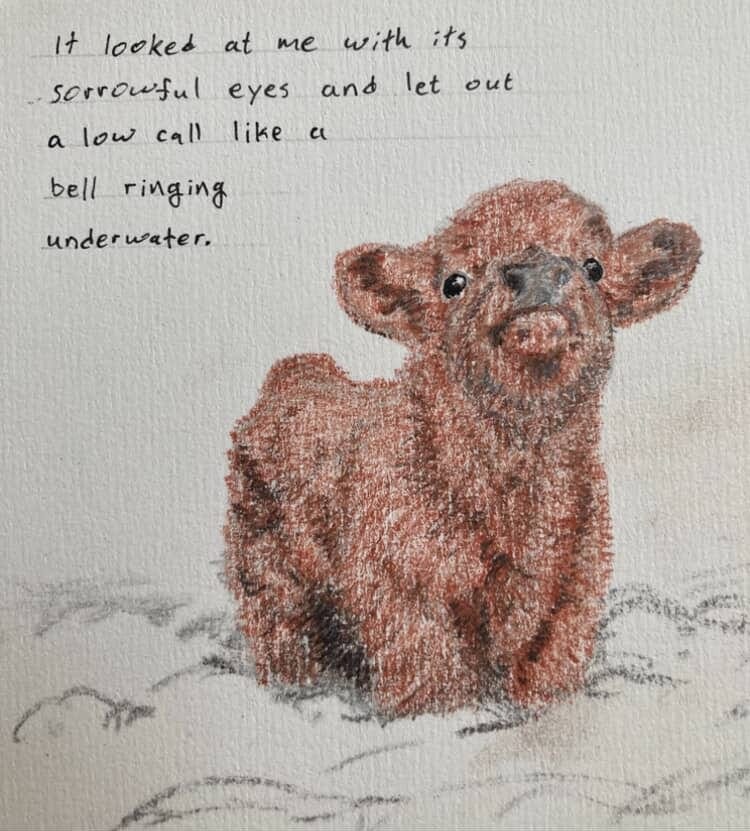 It looked at me with its
sorrowful eyes and let out
a low call like a
bell ringing
underwater.